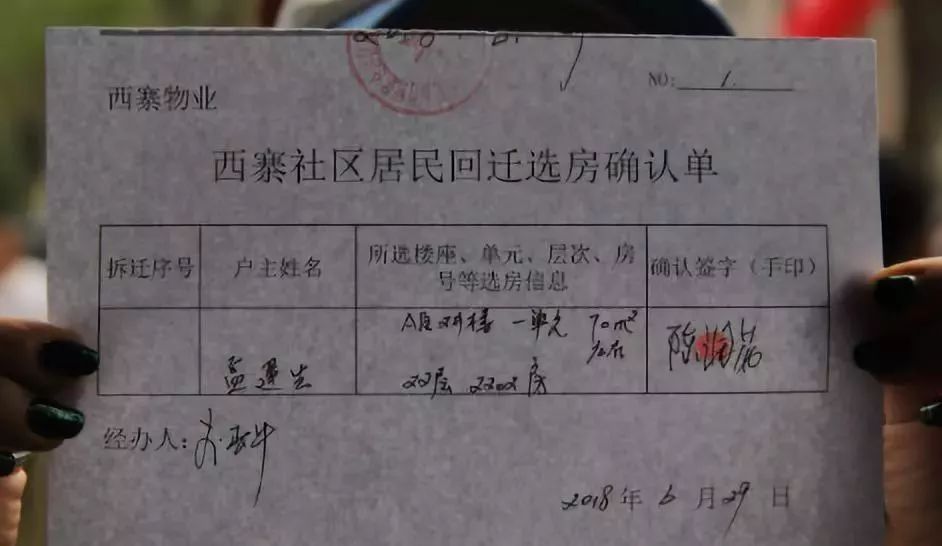 NO: 1.
西寨物业
西寨社区居民回迁选房确认单
拆迁序号
户主姓名
所选楼座、单元、层次、房
号等选房信息
确认签字（手印）
A区 楼 一单元 70m²
左右
孟运生
22层 2202房
陈
经办人：
2018年6月29日